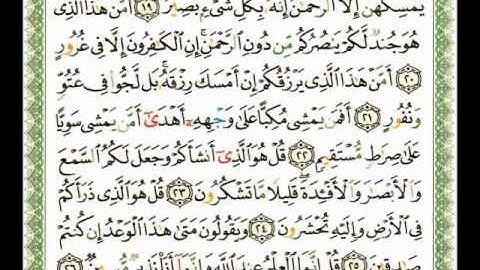 يُمْسِكُهُنَّ إِلَّا الرَّحْمَٰنُ إِنَّهُ بِكُلِّ شَىْءٍ بَصِيرٌ ﴿١٩﴾ أَمَّنْ هَٰذَا الَّذِى
هُوَ جُندٌ لَّكُمْ يَنصُرُكُم مِّن دُونِ الرَّحْمَٰنِ إِنِ الْكَافِرُونَ إِلَّا فِى غُرُورٍ
﴿٢٠﴾ أَمَّنْ هَٰذَا الَّذِى يَرْزُقُكُمْ إِنْ أَمْسَكَ رِزْقَهُ بَل لَّجُّوا فِى عُتُوٍّ
وَنُفُورٍ ﴿٢١﴾ أَفَمَن يَمْشِى مُكِبًّا عَلَىٰ وَجْهِهِ أَهْدَىٰ أَمَّن يَمْشِى سَوِيًّا
عَلَىٰ صِرَاطٍ مُّسْتَقِيمٍ ﴿٢٢﴾ قُلْ هُوَ الَّذِى أَنشَأَكُمْ وَجَعَلَ لَكُمُ السَّمْعَ
وَالْأَبْصَارَ وَالْأَفْئِدَةَ قَلِيلًا مَّا تَشْكُرُونَ ﴿٢٣﴾ قُلْ هُوَ الَّذِى ذَرَأَكُمْ
فِى الْأَرْضِ وَإِلَيْهِ تُحْشَرُونَ ﴿٢٤﴾ وَيَقُولُونَ مَتَىٰ هَٰذَا الْوَعْدُ إِن كُنتُمْ
صَادِقِينَ ﴿٢٥﴾ قُلْ إِنَّمَا الْعِلْمُ عِندَ اللَّهِ وَإِنَّمَا أَنَا نَذِيرٌ مُّبِينٌ ﴿٢٦﴾